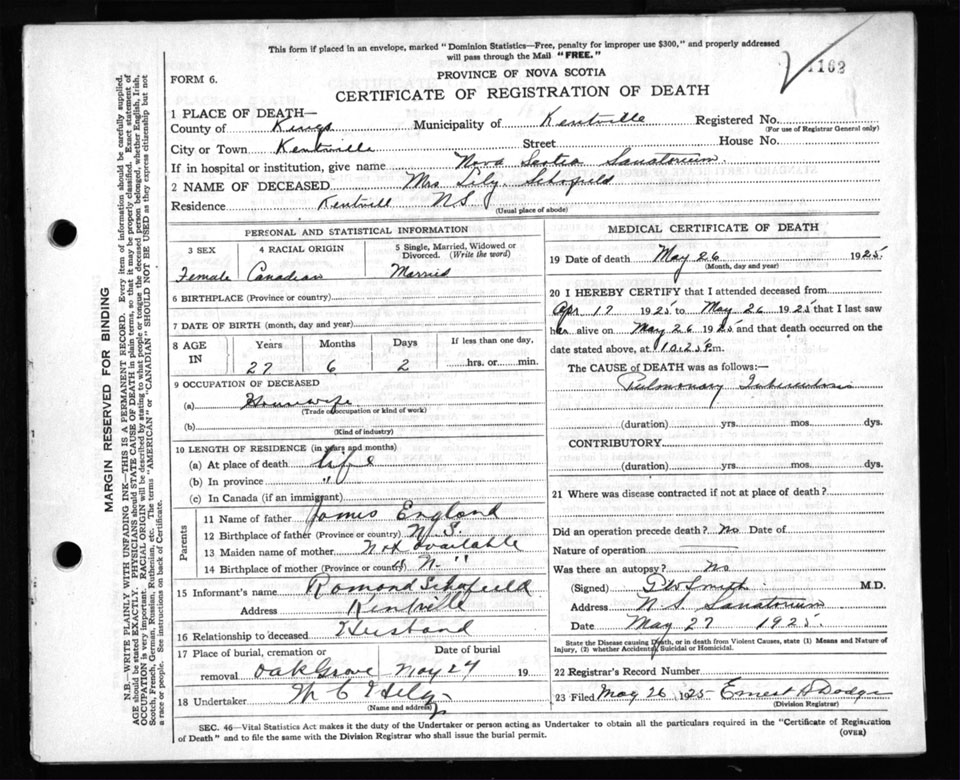 This form if placed in an envelope, marked "Dominion Statistics—Free, penalty for improper use $300," and properly addressed
will pass through the Mail "FREE."
1162
FORM 6.
PROVINCE OF NOVA SCOTIA
CERTIFICATE OF REGISTRATION OF DEATH
MARGIN RESERVED FOR BINDING
N.B.—WRITE PLAINLY WITH UNFADING INK—THIS IS A PERMANENT RECORD. Every item of information should be carefully supplied.
AGE should be stated EXACTLY. PHYSICIANS should STATE CAUSE OF DEATH in plain terms, so that it may be properly classified. Exact statement of
OCCUPATION is very important. RACIAL ORIGIN will be described by stating to what people or tongue the deceased person belonged, whether English, Irish,
Scotch, French, German, Russian, Ruthenian, etc. The terms "AMERICAN" or "CANADIAN" SHOULD NOT BE USED as they express citizenship but not
a race or people. See instructions on back of Certificate.
1 PLACE OF DEATH—
County of Kings Municipality of Kentville Registered No.
(For use of Registrar General only)
City or Town Kentville Street House No.
If in hospital or institution, give name Nova Scotia Sanatorium
2 NAME OF DECEASED Mrs Lily Schofield
Residence Kentvill NS
(Usual place of abode)
PERSONAL AND STATISTICAL INFORMATION
3 SEX 4 RACIAL ORIGIN 5 Single, Married, Widowed or Divorced. (Write the word)
Female Canadian Married
6 BIRTHPLACE (Province or country)
7 DATE OF BIRTH (month, day and year)
8 AGE IN Years Months Days If less than one day,
27 6 2 hrs. or min.
9 OCCUPATION OF DECEASED
(a) Housewife
(Trade occupation or kind of work)
(b)
(Kind of industry)
10 LENGTH OF RESIDENCE (in years and months)
(a) At place of death life
(b) In province "
(c) In Canada (if an immigrant)
Parents
11 Name of father James England
12 Birthplace of father (Province or country) N.S.
13 Maiden name of mother Not available
14 Birthplace of mother (Province or country) N. "
15 Informant's name Romond Schofield
Address Kentville
16 Relationship to deceased Husband
17 Place of burial, cremation or removal Date of burial
Oak Grove May 27 19
18 Undertaker
(Name and address)
MEDICAL CERTIFICATE OF DEATH
19 Date of death May 26 1925
(Month, day and year)
20 I HEREBY CERTIFY that I attended deceased from
Apr 17 1925 to May 26 1925 that I last saw
her alive on May 26 1925 and that death occurred on
date stated above, at 10.25 P.m.
The CAUSE of DEATH was as follows:—
Pulmonary Tuberculosis
(duration) yrs. mos. dys.
CONTRIBUTORY
(duration) yrs. mos. dys.
21 Where was disease contracted if not at place of death?
Did an operation precede death? No Date of
Nature of operation
Was there an autopsy? No
(Signed) Smith M.D.
Address N.S. Sanatorium
Date May 27 1925
State the Disease causing Death, or in death from Violent Causes, state (1) Means and Nature of
Injury, (2) whether Accidental, Suicidal or Homicidal.
22 Registrar's Record Number
23 Filed May 26 1925 Ernest Dodge
(Division Registrar)
SEC. 46—Vital Statistics Act makes it the duty of the Undertaker or person acting as Undertaker to obtain all the particulars required in the "Certificate of Registration
of Death" and to file the same with the Division Registrar who shall issue the burial permit.
(OVER)